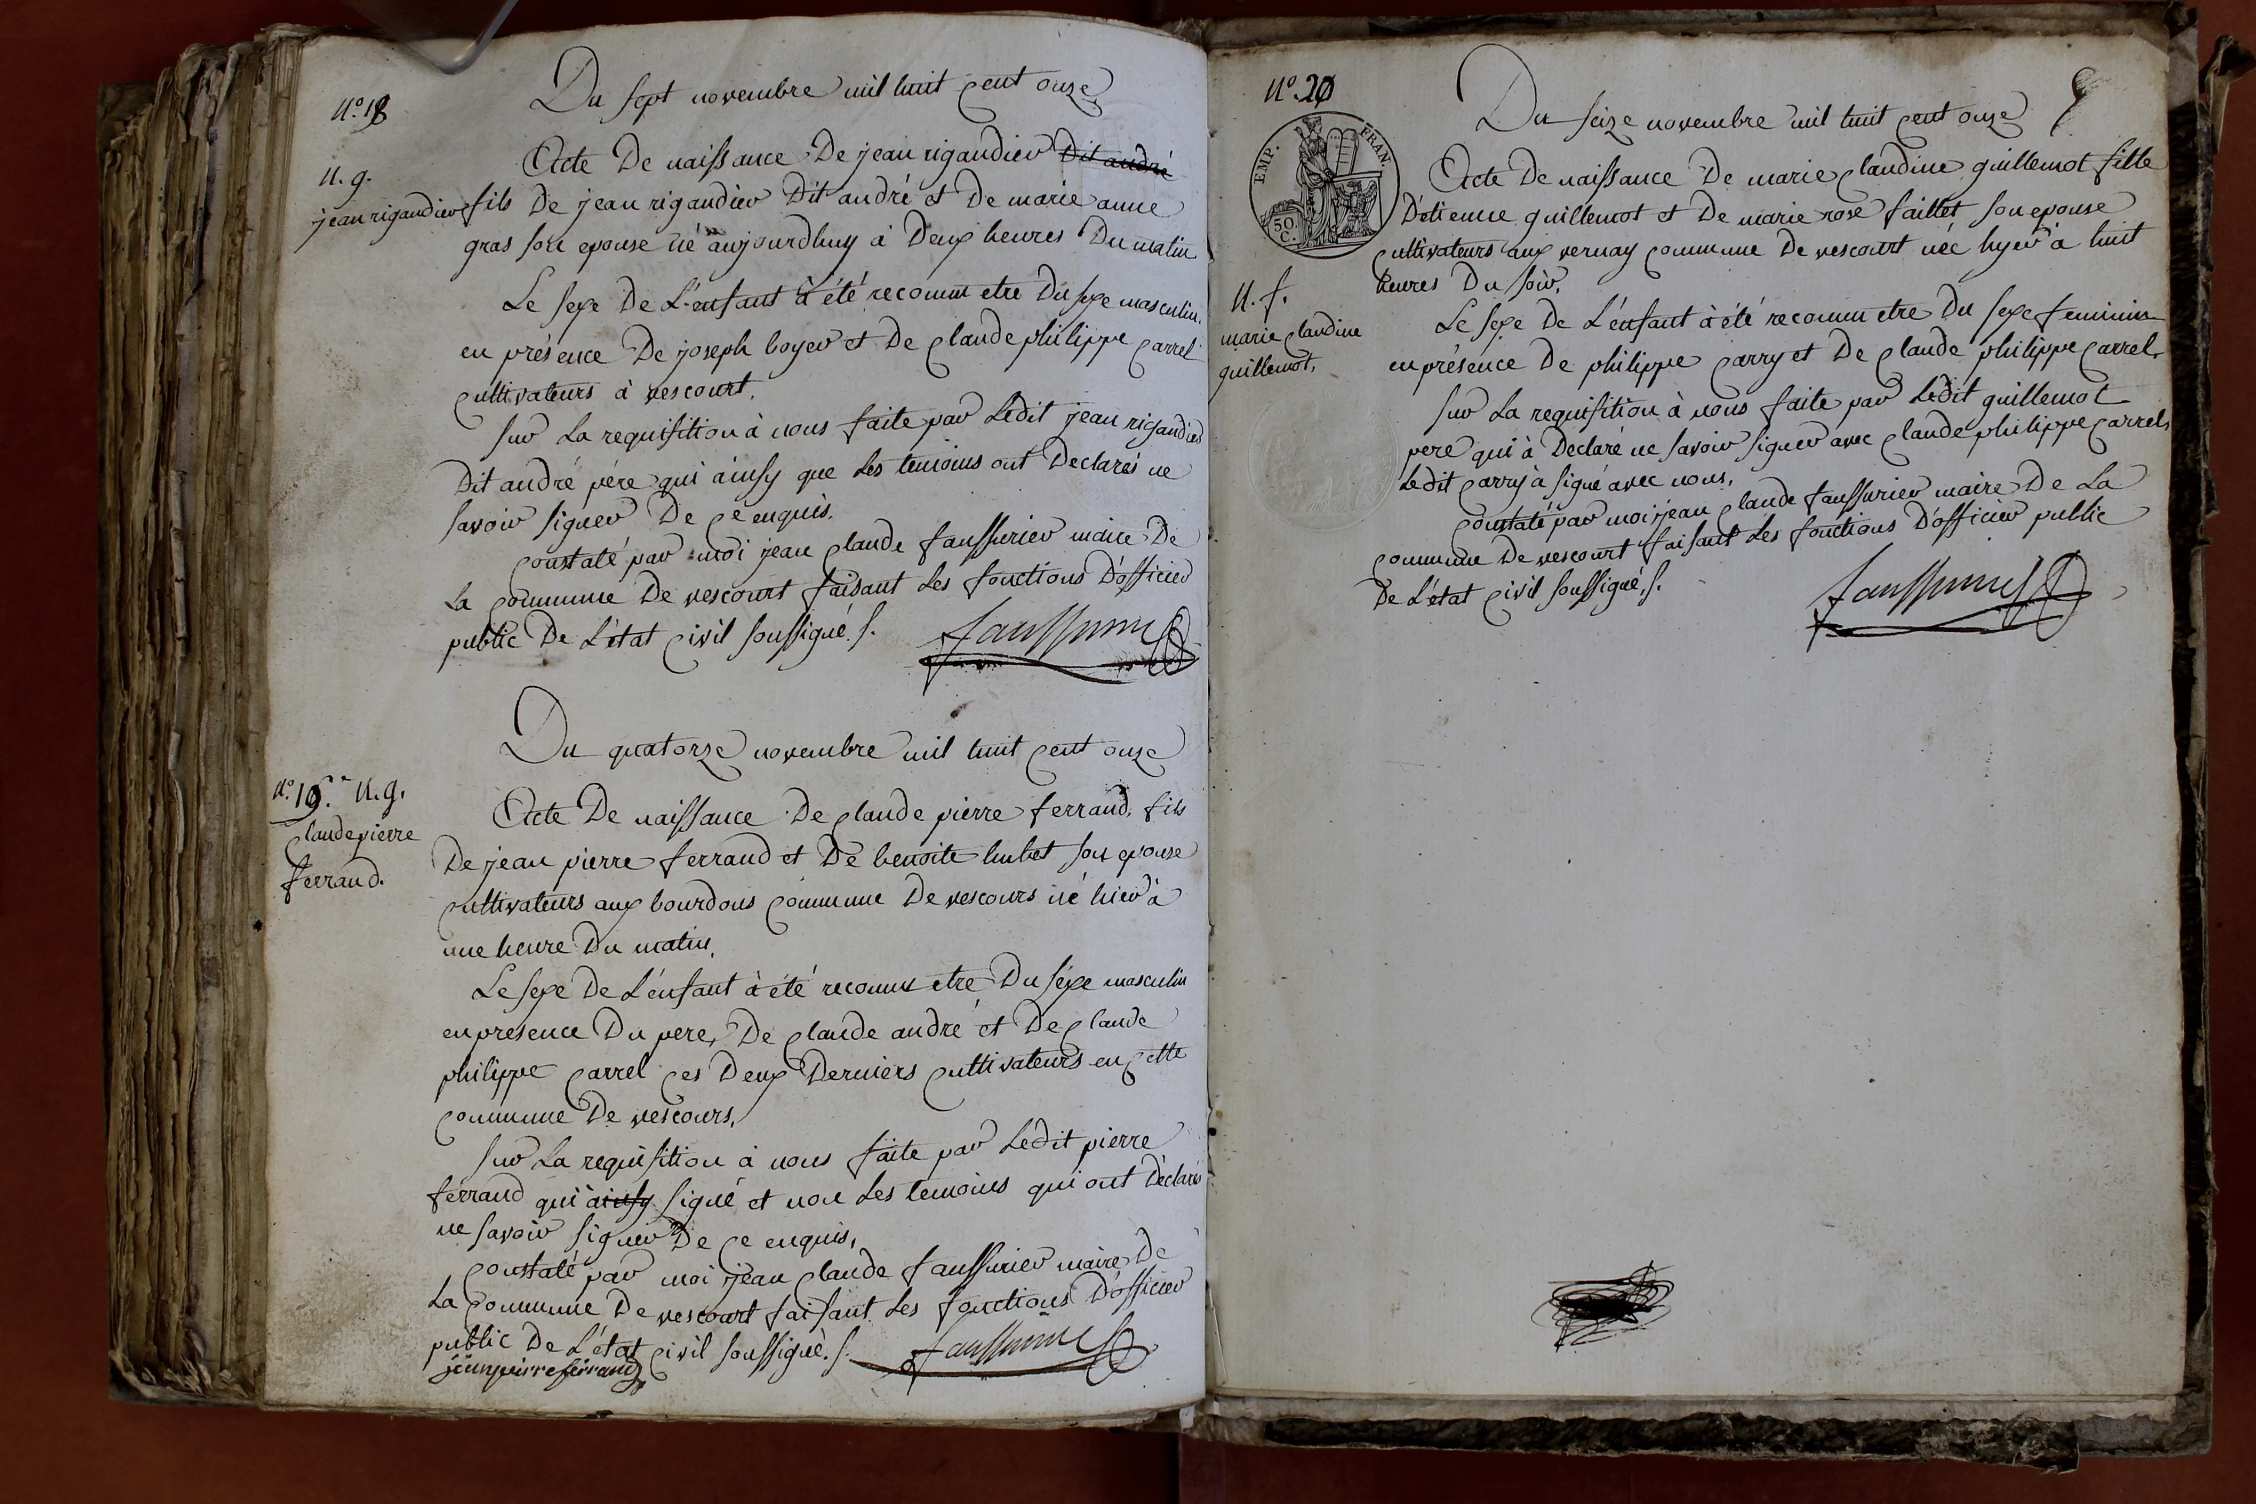 N.° 18
Du sept novembre mil huit cent onze
N. g.
jean rigaudier
Acte De naissance De jean rigaudier Dit andré
fils De jean rigaudier Dit andré et De marie anne
gras son epouse né aujourdhuy à Deux heures Du matin
Le sexe De L'enfant à été reconnu etre Du sexe masculin.
en présence De joseph boyer et De Claude philippe Carrel
Cultivateurs à vescourt.
sur La requisition à nous faite par Ledit jean rigaudier
Dit andré père qui àinsy que Les temoins ont Declarés ne
savoir signer De Ce enquis.
Constaté par moi jean Claude faussurier maire De
La Commune De vescourt faisant Les fonctions D'officier
public De L'état Civil soussigné. /.
faussurier
Du quatorze novembre mil huit Cent onze
N.° 19. N. g.
Claude pierre
ferrand.
Acte De naissance De Claude pierre ferrand, fils
De jean pierre ferrand et De benoite hubet son epouse
Cultivateurs aux bourdons Commune De vescours né hier à
une heure Du matin,
Le sexe De L'énfant à été reconnu etre Du séxe masculin
en presence Du pere, De Claude andré et De Claude
philippe Carrel Ces Deux Derniers Cultivateurs en Cette
Commune De vescours,
sur La requisition à nous faite par Lédit pierre
ferrand qui àinsy signé et non Les temoins qui ont Déclarés
ne savoir signer De Ce enquis,
Constaté par moi jean Claude faussurier maire De
La Commune De vescourt faisant Les fonctions D'officier
public De L'état Civil soussigné. /.
faussurier
jean pierre ferrand
N.° 20
Du seize novembre mil huit Cent onze
EMP. FRAN.
50.
C.
Acte De naissance De marie Claudine guillemot fille
D'etienne guillemot et De marie rose faillet son epouse
Cultivateurs aux vernay Commune De vescourt née hyer à huit
heures Du soir.
N. f.
marie Claudine
guillemot,
Le sexe De L'énfant à été reconnu etre Du sexe feminin
en présence De philippe Carry et De Claude philippe Carrel,
sur La requisition à nous faite par Ledit guillemot
pere qui à Declaré ne savoir signer avec Claude philippe Carrel,
Ledit Carry à signé avec nous,
Constaté par moi jean Claude faussurier maire De La
Commune De vescourt faisant Les fonctions D'officier public
De L'état Civil soussigné. /.
faussurier